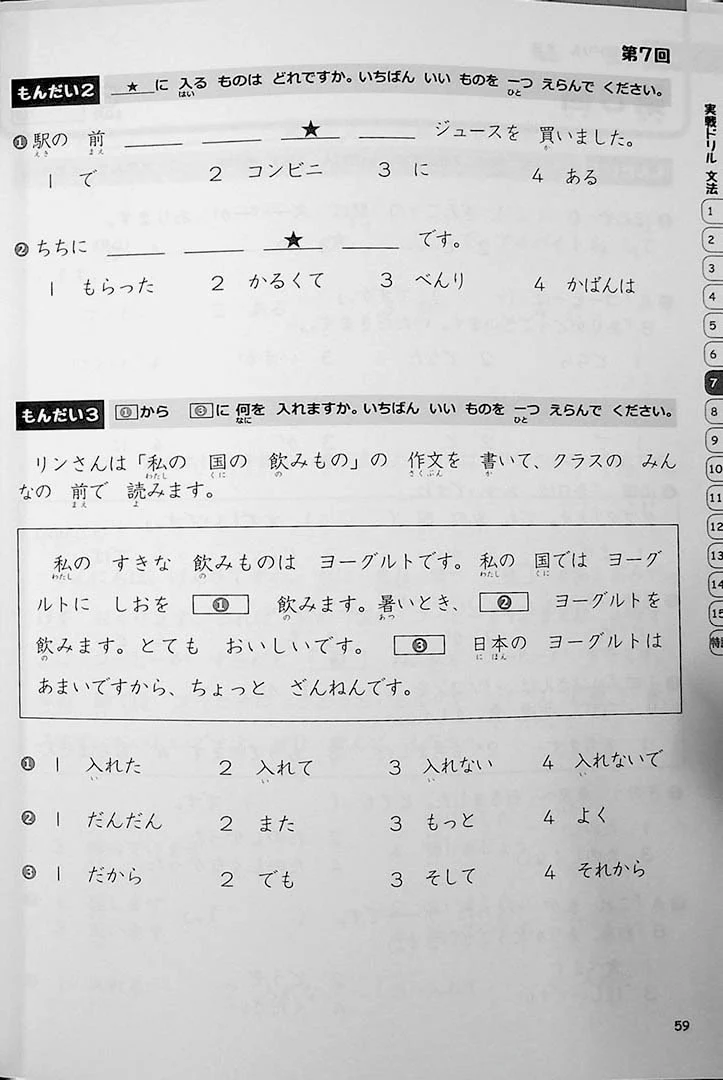 第7回
もんだい2 ＿★＿に 入る ものは どれですか。いちばん いい ものを 一つ えらんで ください。
はい ひと
❶駅の 前 ＿＿＿ ＿＿＿ ＿★＿ ＿＿＿ ジュースを 買いました。
えき まえ か
1 で 2 コンビニ 3 に 4 ある
❷ちちに ＿＿＿ ＿＿＿ ＿★＿ ＿＿＿ です。
1 もらった 2 かるくて 3 べんり 4 かばんは
もんだい3 ❶から ❸に 何を 入れますか。いちばん いい ものを 一つ えらんで ください。
なに ひと
リンさんは「私の 国の 飲みもの」の 作文を 書いて、クラスの みん
わたし くに の さくぶん か
なの 前で 読みます。
まえ よ
私の すきな 飲みものは ヨーグルトです。私の 国では ヨーグ
わたし の わたし くに
ルトに しおを ❶ 飲みます。暑いとき、 ❷ ヨーグルトを
の あつ
飲みます。とても おいしいです。 ❸ 日本の ヨーグルトは
の にほん
あまいですから、ちょっと ざんねんです。
❶ 1 入れた 2 入れて 3 入れない 4 入れないで
い い い い
❷ 1 だんだん 2 また 3 もっと 4 よく
❸ 1 だから 2 でも 3 そして 4 それから
59
実戦ドリル 文法
1
2
3
4
5
6
7
8
9
10
11
12
13
14
15